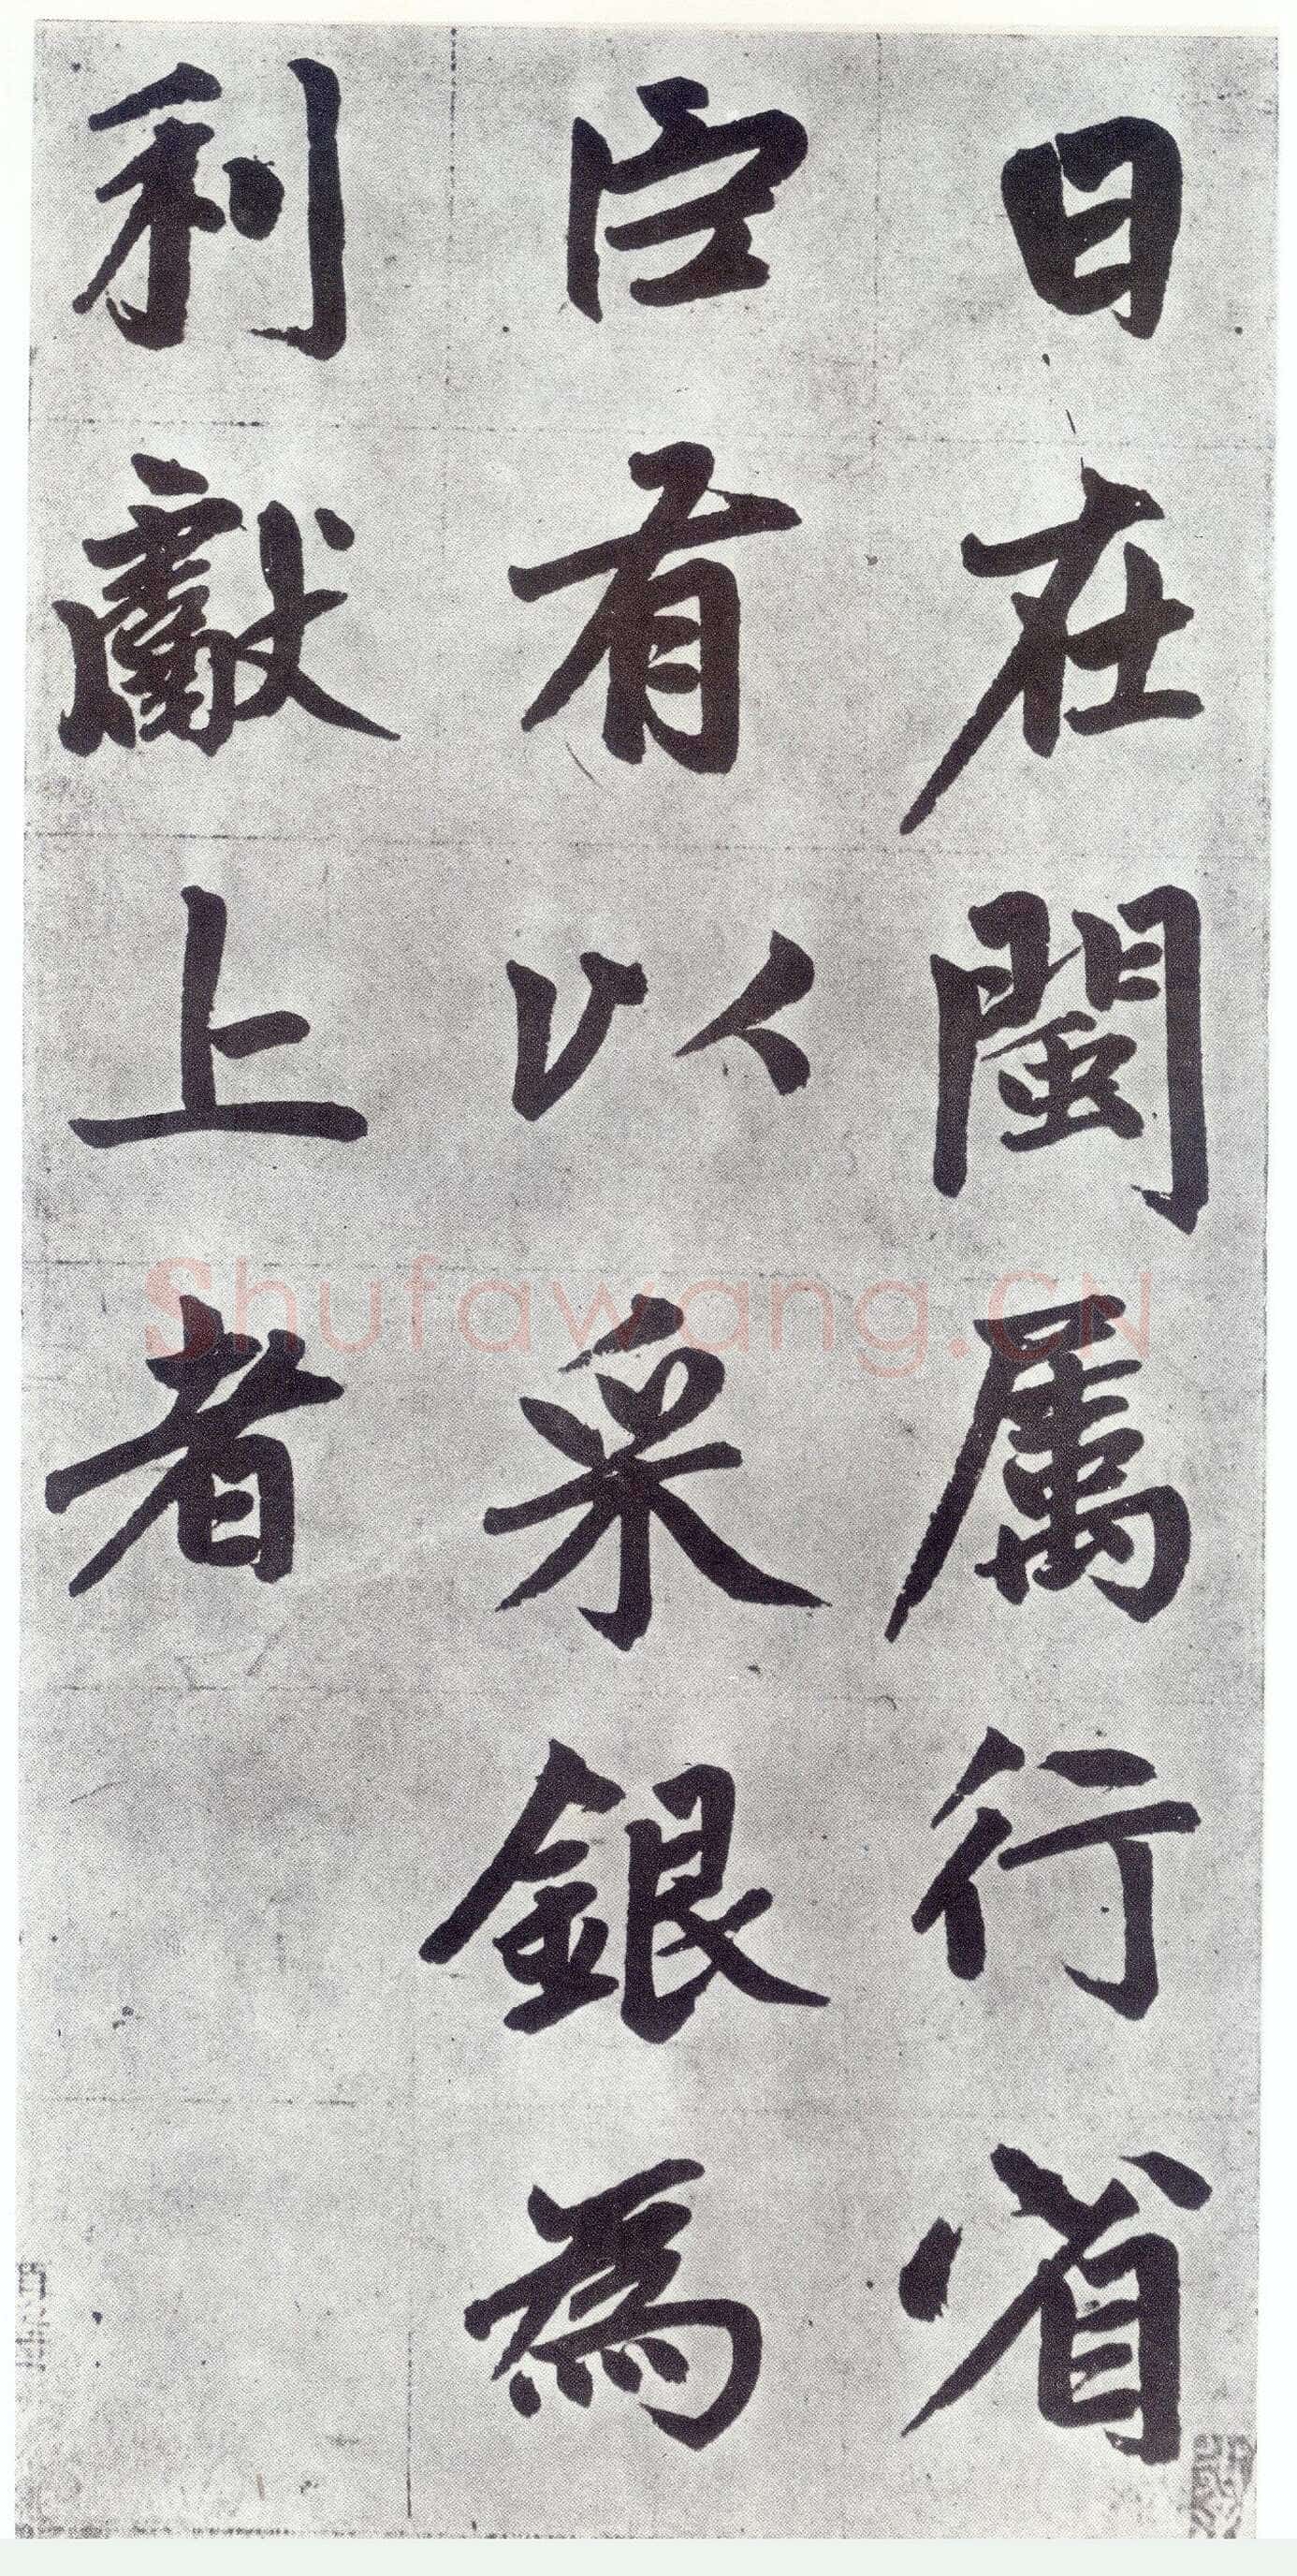 日在閩属行省
有以采銀為
利獻上者
Shufawang.CN